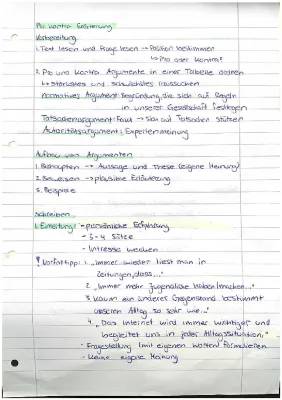 Pro contra Erörterung
Vorbereitung
1. Text lesen und Frage lesen → Position bestimmen
↳ Pro oder Kontra?
2. Pro und Kontra Argumente in einer Tabelle ordnen
↳ stärkstes und schwächstes raussuchen
Normatives Argument: Begründung, die sich auf Regeln
in unserer Gesellschaft festlegen
Tatsachenargument: Fakt → sich auf Tatsachen stützen
Autoritätsargument: Expertenmeinung
Aufbau von Argumenten
1. Behaupten → Aussage und These (eigene Meinung)
2. Beweisen → plausible Erläuterung
3. Beispiele
Schreiben
1. Einleitung: - persönliche Erfahrung
- 3-4 Sätze
- Interesse wecken
! 1. „Immer wieder liest man in
Zeitungen, dass..."
2. „Immer mehr Jugendliche haben/machen..."
3. Kaum ein anderer Gegenstand bestimmt
unseren Alltag so sehr wie..."
4. „Das Internet wird immer wichtiger und
begleitet uns in jeder Alltagssituation."
- Fragestellung (mit eigenen Worten) formulieren
- keine eigene Meinung